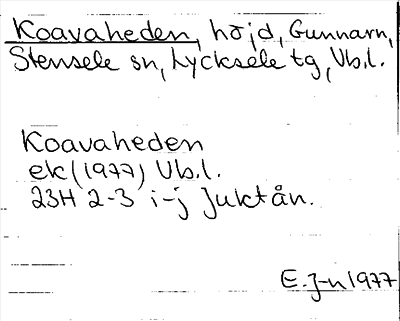 Koavaheden, höjd, Gunnarn,
Stensele sn, Lycksele tg, Vb.l.
Koavaheden
ek (1977) Vb.l.
23H 2-3 i-j Juktån.
E. J-n 1977